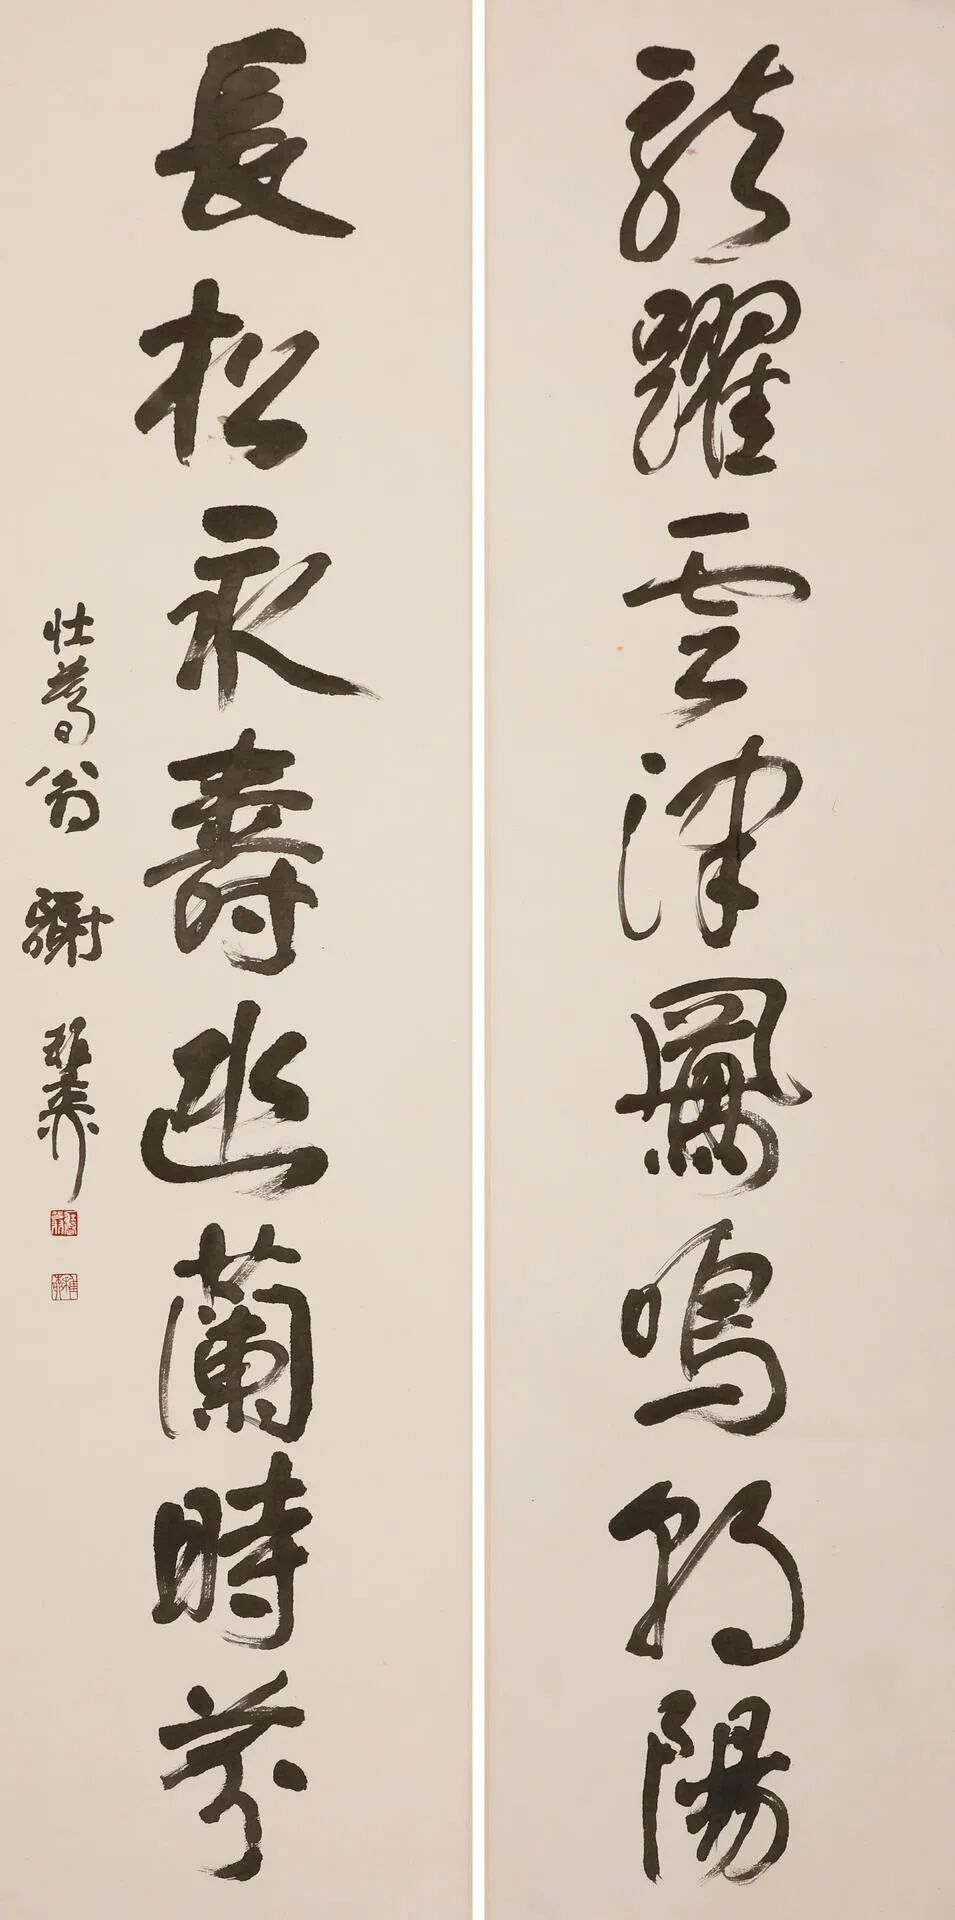 龍躍雲津鳳鳴朝陽
長松永壽幽蘭時芬
壯暮翁謝稚柳